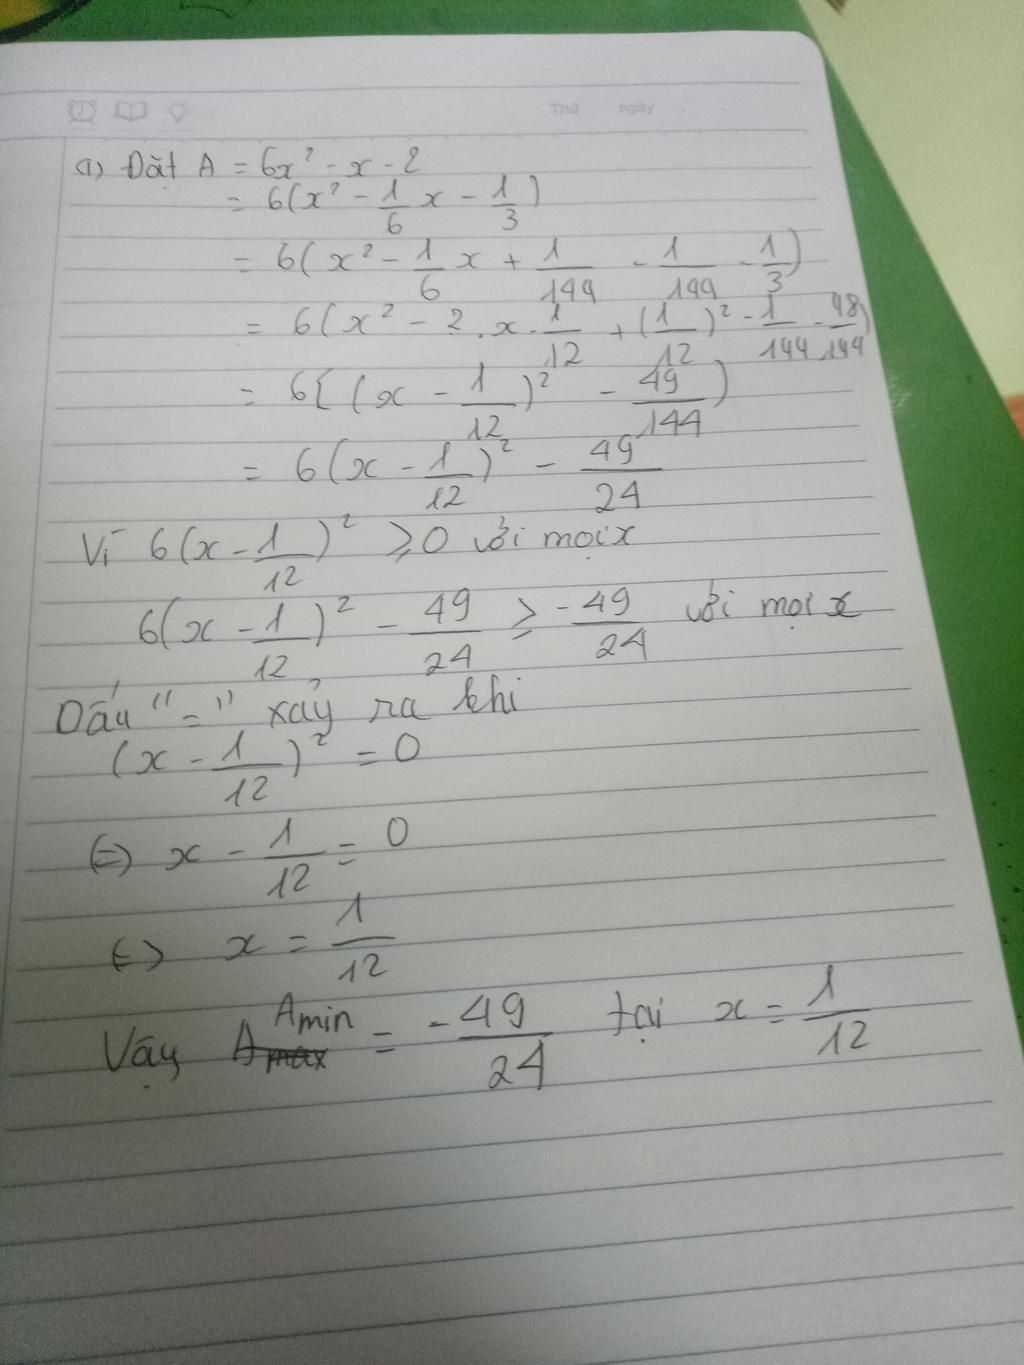 Thứ ngày
a) Đặt A = 6x² - x - 2
= 6(x² - 1/6 x - 1/3)
= 6(x² - 1/6 x + 1/144 - 1/144 - 1/3)
= 6(x² - 2.x.1/12 + (1/12)² - 1/144 - 48/144)
= 6[(x - 1/12)² - 49/144)
= 6(x - 1/12)² - 49/24
Vì 6(x - 1/12)² ≥ 0 với mọi x
6(x - 1/12)² - 49/24 ≥ -49/24 với mọi x
Dấu "=" xảy ra khi
(x - 1/12)² = 0
(=) x - 1/12 = 0
(=) x = 1/12
Vậy Amin = -49/24 tại x = 1/12